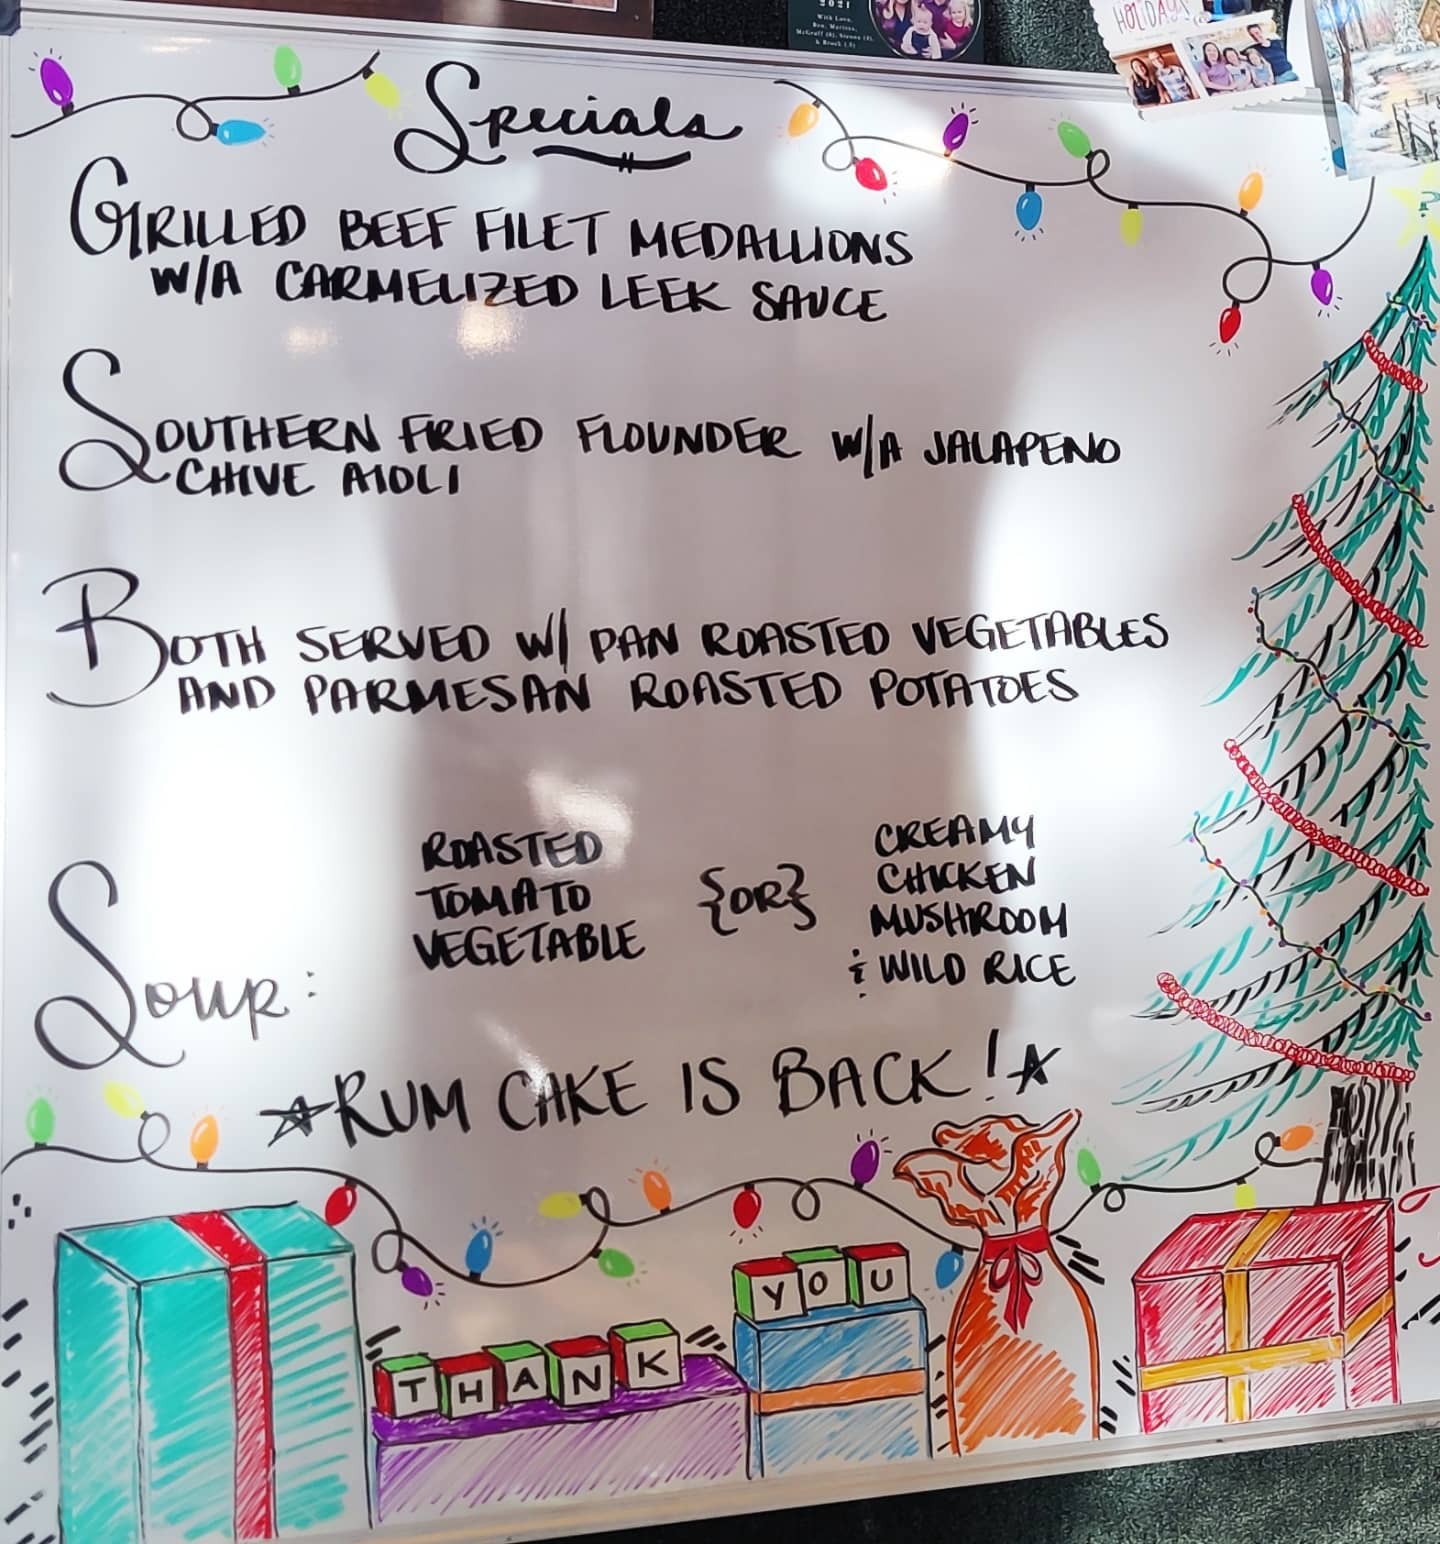 2021
With Love,
HOLIDAYS
Specials
GRILLED BEEF FILET MEDALLIONS
W/A CARMELIZED LEEK SAUCE
SOUTHERN FRIED FLOUNDER W/A JALAPENO
CHIVE AIOLI
BOTH SERVED W/ PAN ROASTED VEGETABLES
AND PARMESAN ROASTED POTATOES
Soup:
ROASTED
TOMATO
VEGETABLE
{OR}
CREAMY
CHICKEN
MUSHROOM
& WILD RICE
RUM CAKE IS BACK!
THANK
YOU